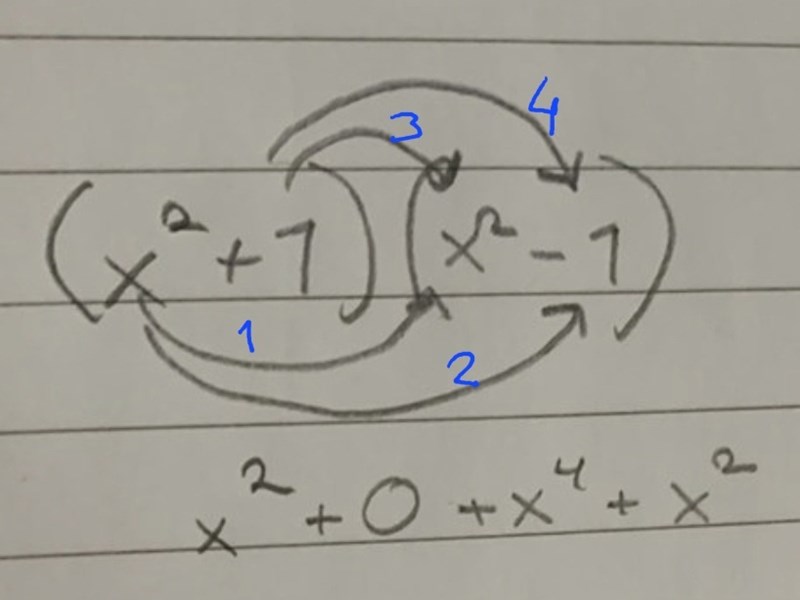 3 4
(x² + 1)(x² - 1)
1 2
x² + 0 + x⁴ + x²